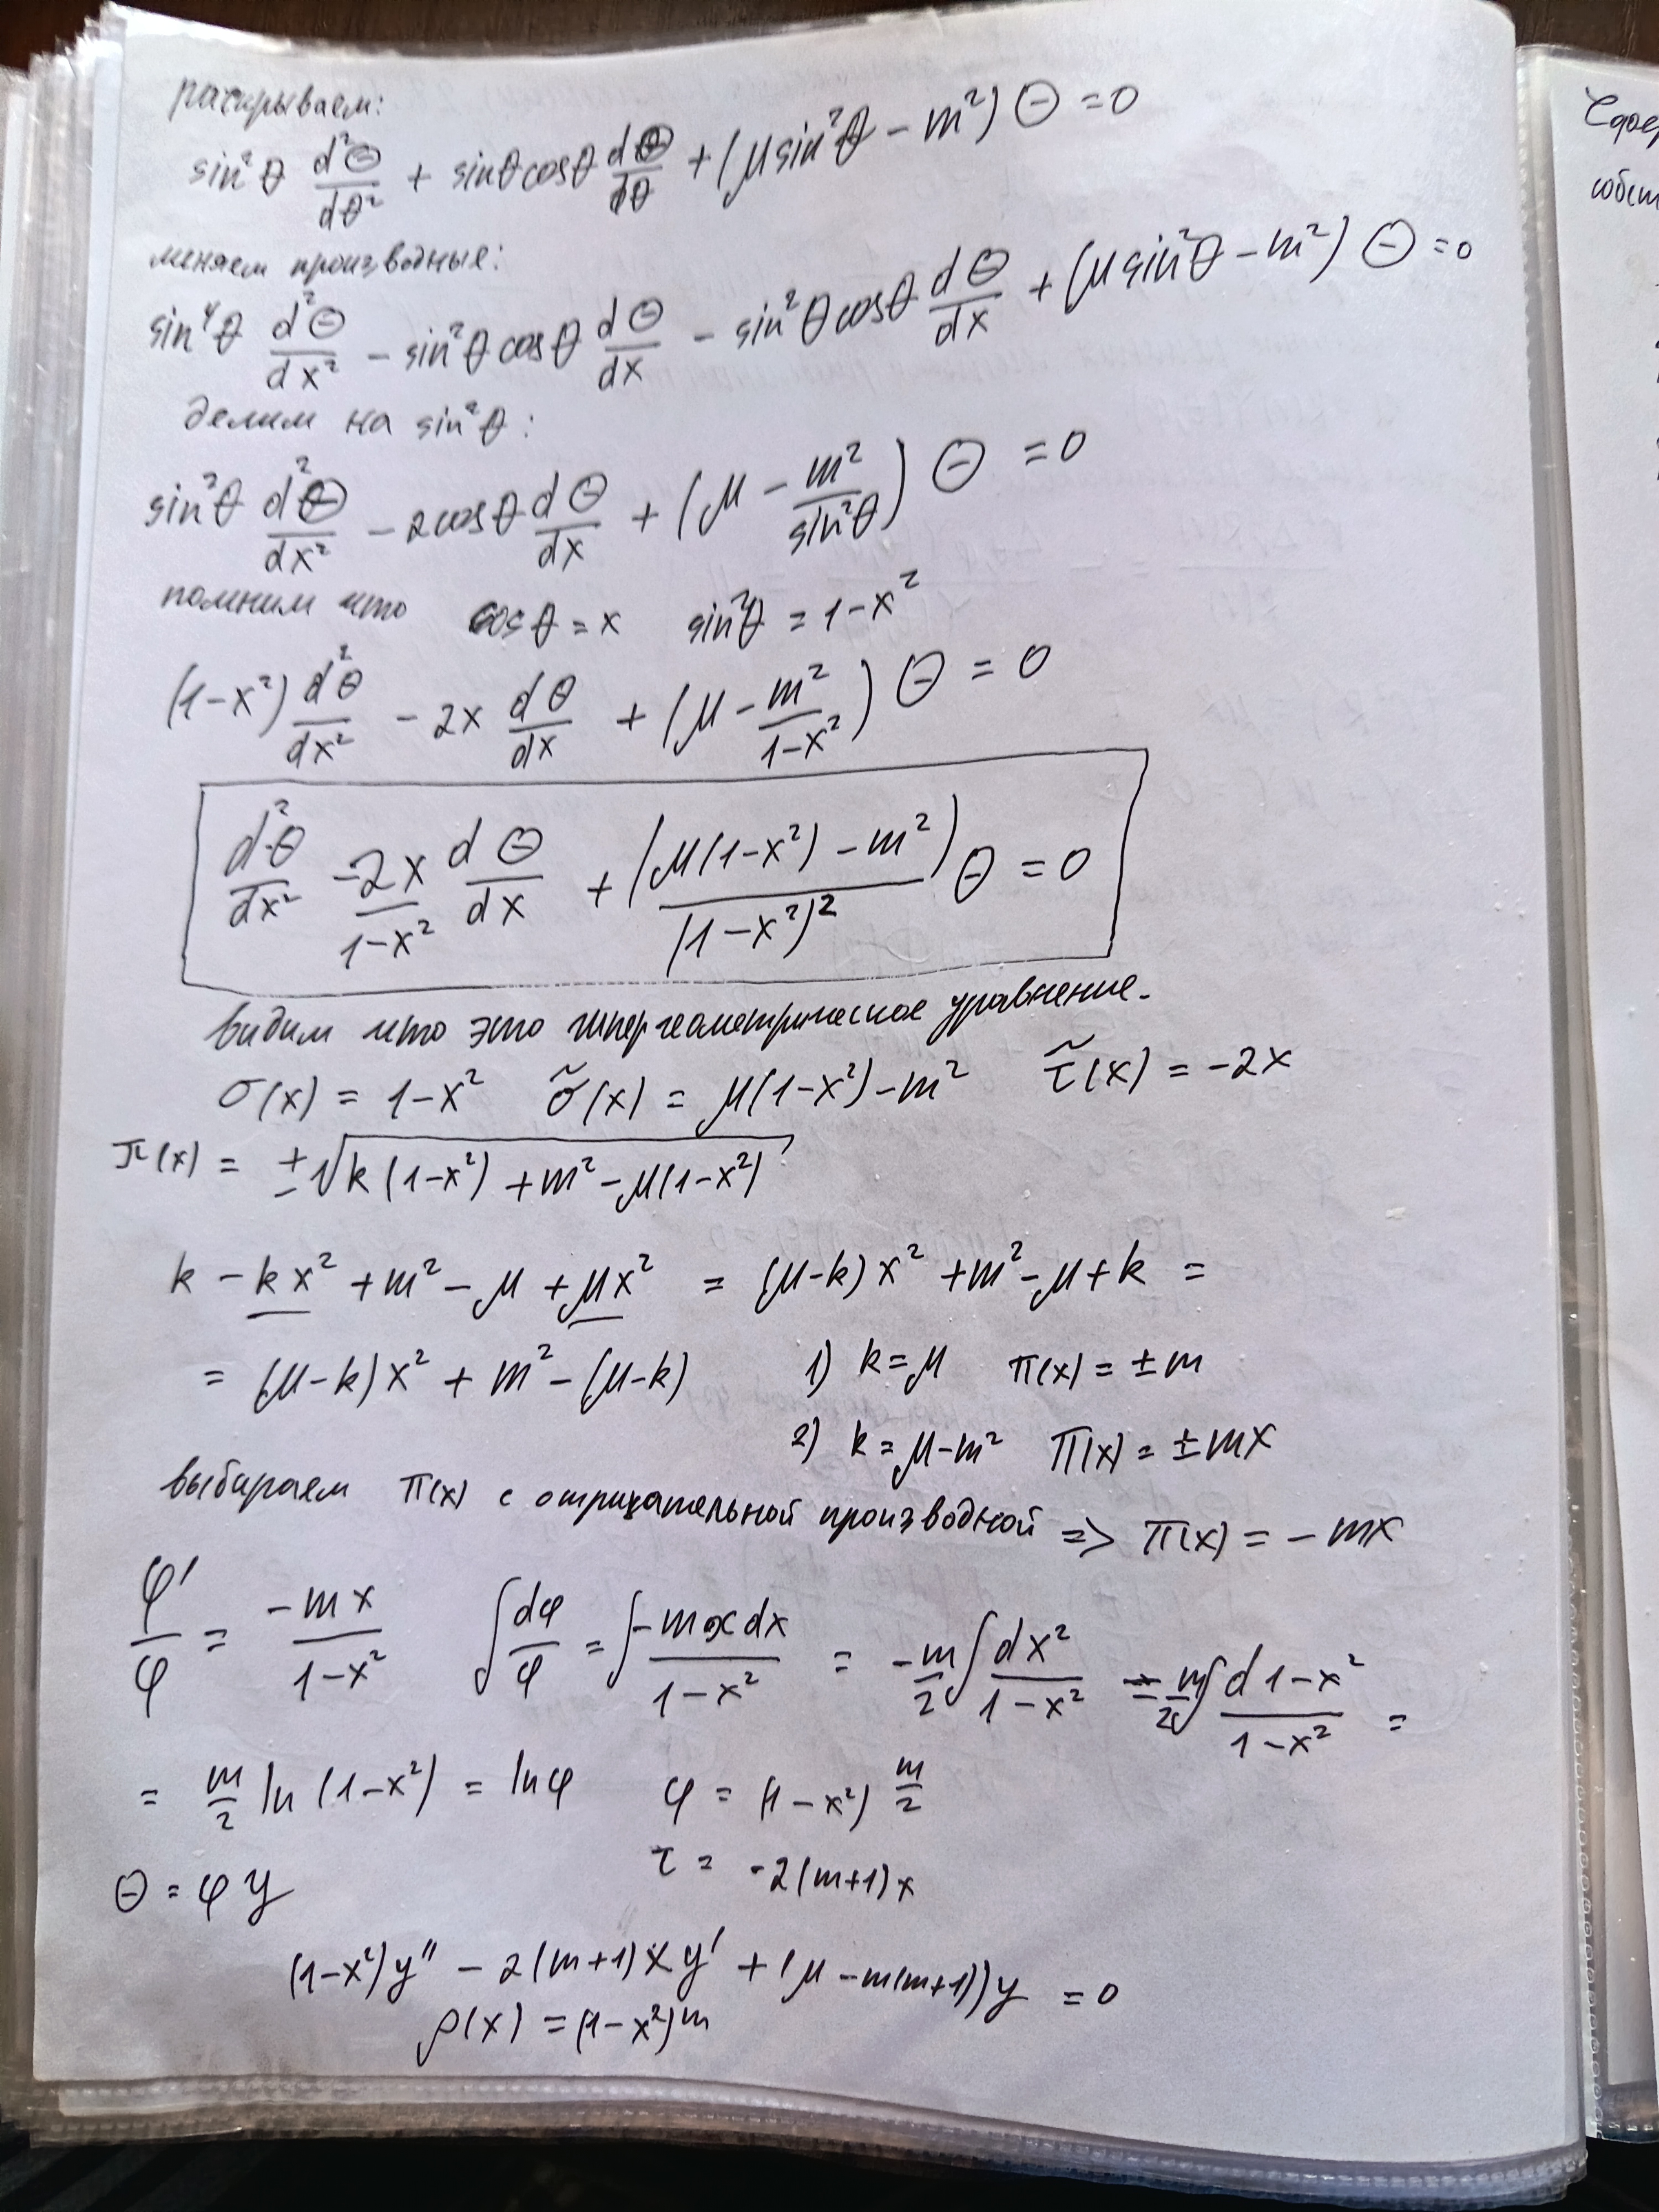 раскрываем:
sin²θ d²Θ/dθ² + sinθcosθ dΘ/dθ + (μsin²θ − m²) Θ = 0
меняем производные:
sin⁴θ d²Θ/dx² − sin²θ cosθ dΘ/dx − sin²θcosθ dΘ/dx + (μsin²θ − m²) Θ = 0
делим на sin²θ:
sin²θ d²Θ/dx² − 2cosθ dΘ/dx + (μ − m²/sin²θ) Θ = 0
помним что cosθ = x sin²θ = 1−x²
(1−x²) d²Θ/dx² − 2x dΘ/dx + (μ − m²/(1−x²)) Θ = 0
d²Θ/dx² −2x/(1−x²) dΘ/dx + (μ(1−x²) − m²)/(1−x²)² Θ = 0
видим что это гипергеометрическое уравнение.
σ(x) = 1−x² σ̃(x) = μ(1−x²)−m² τ̃(x) = −2x
π(x) = ±√(k(1−x²) + m² − μ(1−x²))
k − kx² + m² − μ + μx² = (μ−k)x² + m² − μ + k =
= (μ−k)x² + m² − (μ−k) 1) k=μ π(x) = ±m
2) k = μ−m² π(x) = ±mx
выбираем π(x) с отрицательной производной => π(x) = −mx
φ'/φ = −mx/(1−x²) ∫dφ/φ = ∫−mxdx/(1−x²) = −m/2 ∫dx²/(1−x²) = m/2 ∫d 1−x²/(1−x²) =
= m/2 ln(1−x²) = lnφ φ = (1−x²)^(m/2)
Θ = φy τ = −2(m+1)x
(1−x²)y'' − 2(m+1)xy' + (μ − m(m+1))y = 0
ρ(x) = (1−x²)^m